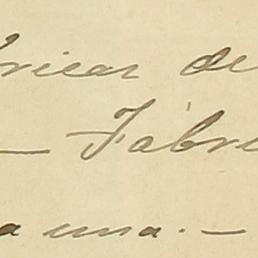 bricar de
— Fabri
a una. —